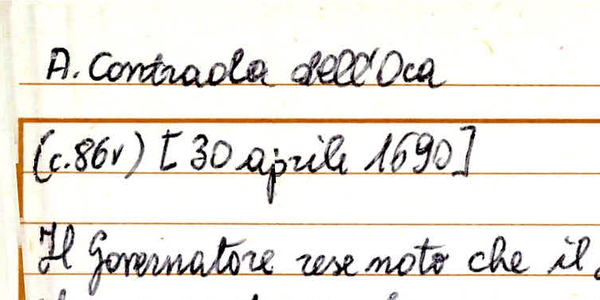 A. Contrada dell'Oca
(c.86v) [30 aprile 1690]
Il Governatore rese noto che il